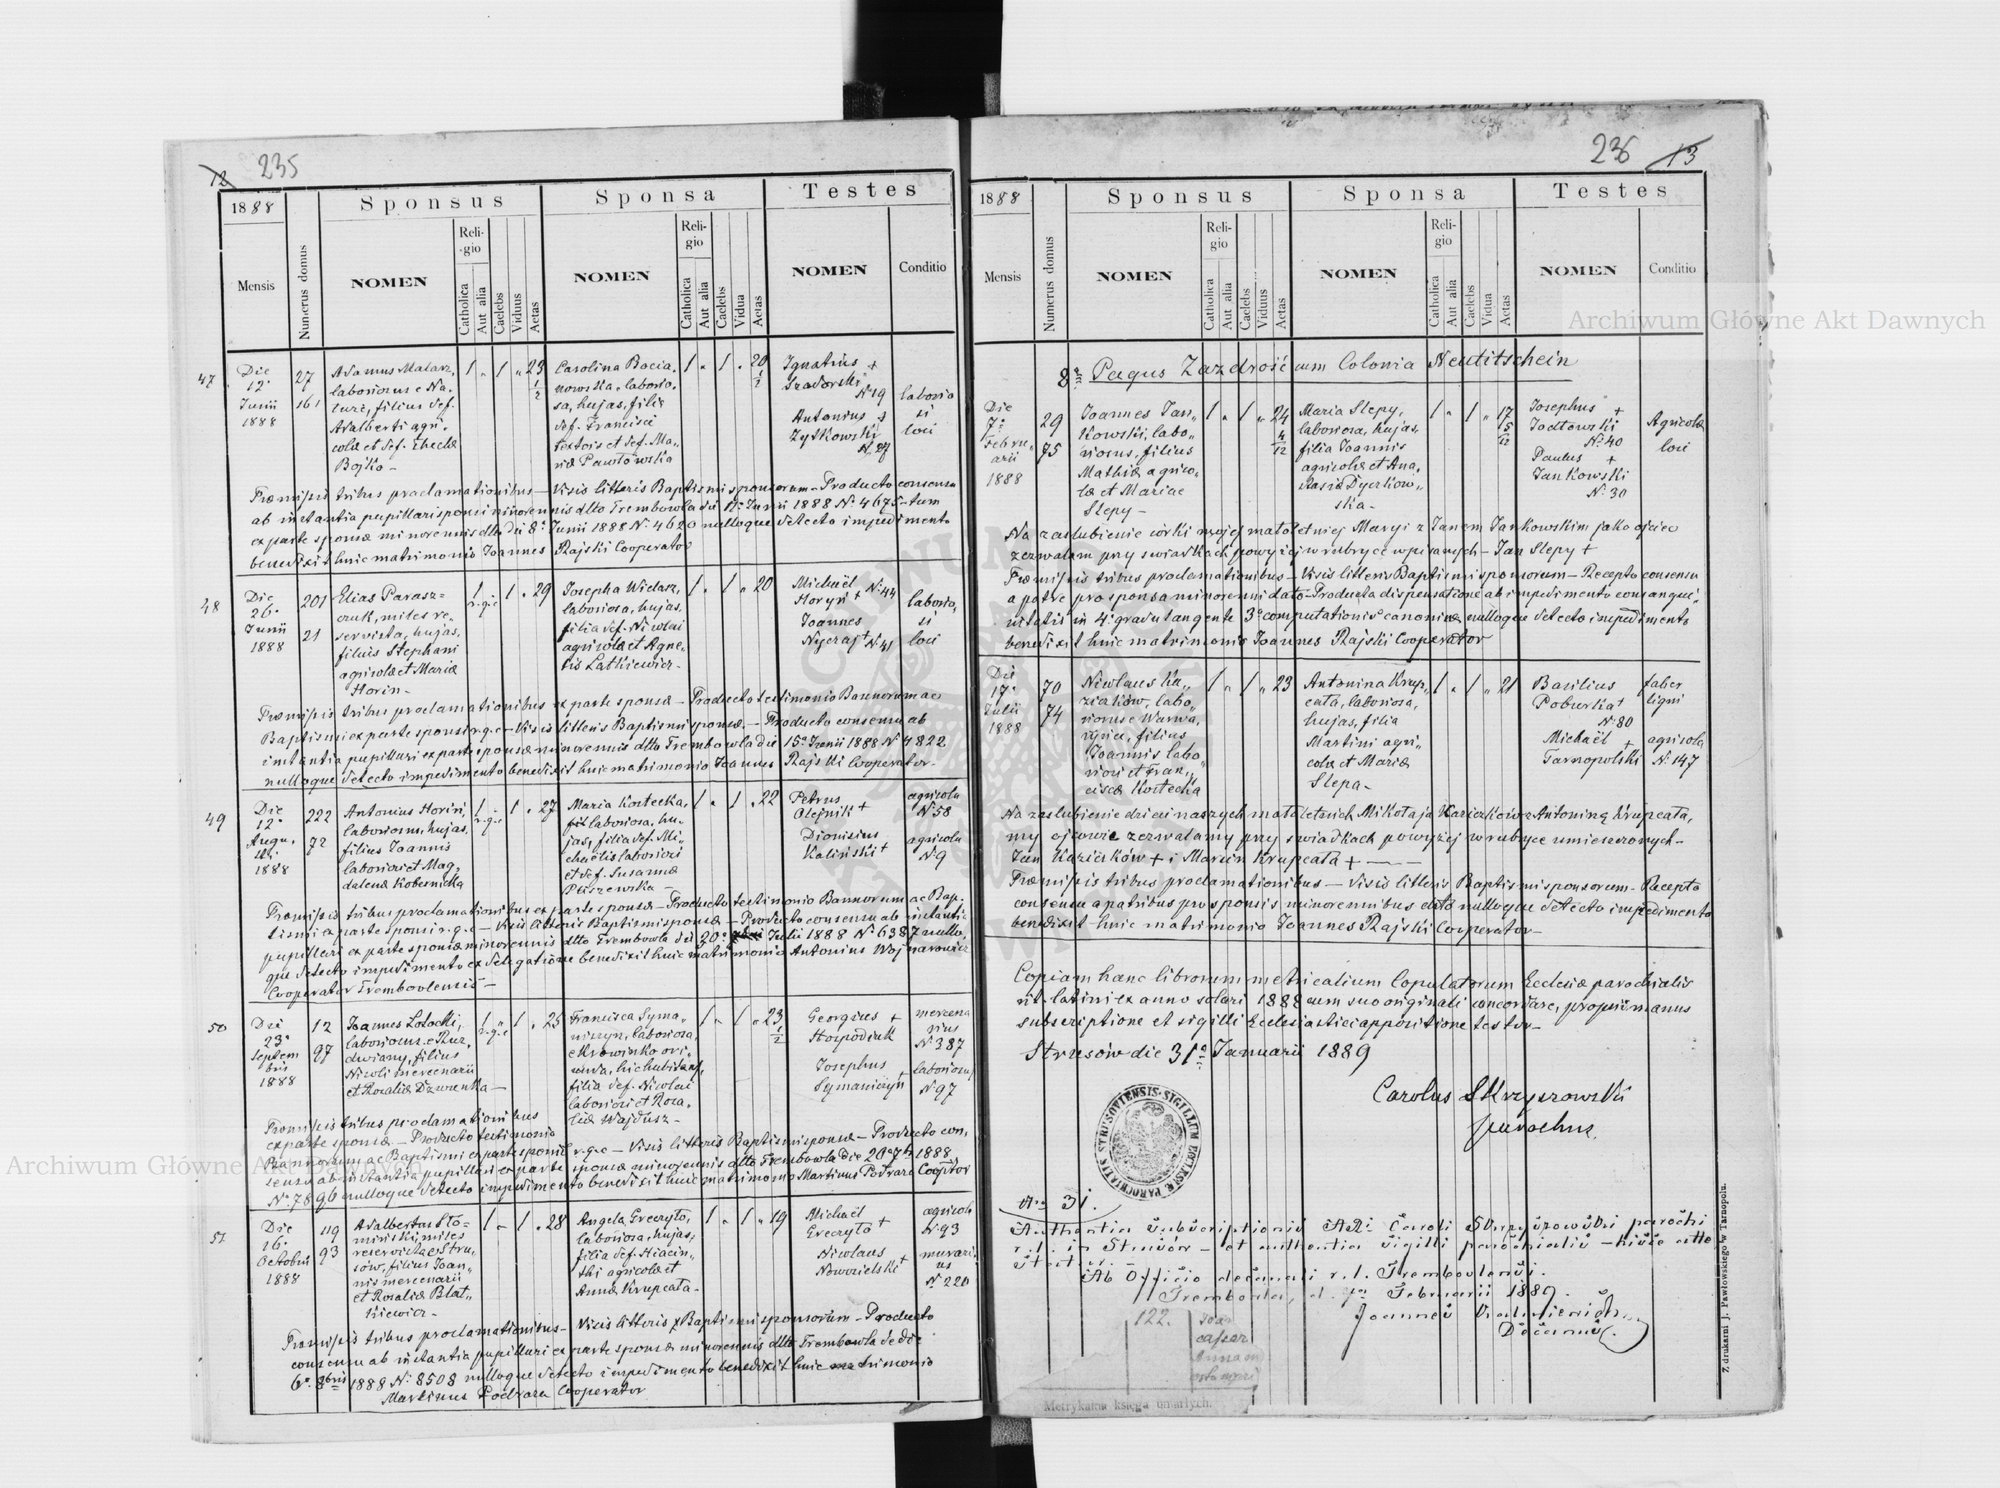 12 235
1888
Sponsus
Sponsa
Testes
Mensis
Numerus domus
NOMEN
Religio
Catholica
Aut alia
Caelebs
Viduus
Aetas
NOMEN
Religio
Catholica
Aut alia
Caelebs
Vidua
Aetas
NOMEN
Conditio
47
Die
12a
Junii
1888
27
161
Adamus Malarz,
laboriosus e Na-
luże, filius def.
Adalberti agri-
colae et def. Theclae
Bojko -
1 " 1 " 23 1/2
Carolina Bacia-
nowska, laborio-
sa, hujas, filia
def. Francisci
textoris et def. Ma-
riae Pawłowska
1 " 1 " 20 1/2
Ignatius +
Szadorski
N. 19
Antonius +
Zytkowski
N. 27
laborio
si
loci
Praemissis tribus proclamationibus - Visis litteris Baptismi sponsorum - Producto consensu
ab instantia pupillari sponsi minorennis dtto Trembowla die 12a Junii 1888 N. 4675 - tum
ex parte sponsae minorennis dtto die 8a Junii 1888 N. 4620 nulloque detecto impedimento
benedixit huic matrimonio Joannes Rajski Cooperator
48
Die
26a
Junii
1888
201
21
Elias Parasz=
czuk, miles re-
servista, hujas,
filius Stephani
agricolae et Mariae
Horin -
1 r.g.c 1 " 29
Josepha Wielarz,
laboriosa, hujas,
filia def. Nicolai
agricolae et Agne-
tis Latkiewicz -
1 " 1 " 20
Michaël N. 44
Horyń +
Joannes
Nyczaj + N. 41
laborio,
si
loci
Praemissis tribus proclamationibus ex parte sponsae - Producto testimonio Bannorum ac
Baptismi ex parte sponsi r.g.c - Visis litteris Baptismi sponsae - Producto consensu ab
instantia pupillari ex parte sponsae minorennis dtto Trembowla die 15a Junii 1888 N. 4822
nulloque detecto impedimento benedixit huic matrimonio Joannes Rajski Cooperator -
49
Die
12a
Augu-
sti
1888
222
72
Antonius Horin,
laboriosus, hujas,
filius Joannis
laboriosi et Mag-
dalenae Kobernicka
1 r.g.c 1 " 27
Maria Kostecka,
laboriosa, hu-
jas, filia def. Mi-
chaëlis laboriosi
et def. Susannae
Ptaszewska -
1 " 1 " 22
Petrus
Olejnik +
Dionisius
Kaliński +
agricola
N. 58
agricola
N. 9
Praemissis tribus proclamationibus ex parte sponsae - Producto testimonio Bannorum ac Bap-
tismi ex parte sponsi r.g.c - Visis litteris Baptismi sponsae - Producto consensu ab instanti-
pupillari ex parte sponsae minorennis dtto Trembowla die 20a Julii 1888 N. 6387 nullo-
que detecto impedimento ex delegatione benedixit huic matrimonio Antonius Wojnarowicz
Cooperator Trembovlensis -
50
Die
23a
Septem
bris
1888
12
97
Joannes Łotocki,
laboriosus e Ruz-
dwiany, filius
Nicolai mercenarii
et Rosaliae Dzurenka -
1 r.g.c 1 " 25
Francisca Syma-
niszyn, laboriosa,
e Krowinka ori-
unda, hic habitans,
filia def. Nicolai
laboriosi et Rosa-
liae Wajdusz -
1 " 1 " 23 1/2
Georgius +
Hospodiuk
Josephus +
Symaniszyn
mercena
rius
N. 387
laboriosus
N. 97
Praemissis tribus proclamationibus
ex parte sponsae - Producto testimonio
Bannorum ac Baptismi ex parte sponsi r.g.c - Visis litteris Baptismi sponsae - Producto con-
sensu ab instantia pupillari ex parte sponsae minorennis dtto Trembowla die 20a 7bris 1888,
N. 7896 nulloque detecto impedimento benedixit huic matrimonio Martinus Podraza Cooptor
51
Die
16a
Octobris
1888
119
93
Adalbertus Sło=
miński, miles
reservista e Stru-
sów, filius Joan-
nis mercenarii
et Rosaliae Blat-
kiewicz -
1 " 1 " 28
Angela Greczyło,
laboriosa, hujas,
filia def. Hiacin-
thi agricolae et
Annae Krupcata -
1 " 1 " 19
Michaël
Greczyło +
Nicolaus
Nowosielski +
agricola
N. 93
murari
us
N. 220
Praemissis tribus proclamationibus - Visis litteris Baptismi sponsorum - Producto
consensu ab instantia pupillari ex parte sponsae minorennis dtto Trembowla de die
6a 8bris 1888 N. 8508 nulloque detecto impedimento benedixit huic matrimonio
Martinus Podraza Cooperator
236 13
1888
Sponsus
Sponsa
Testes
Mensis
Numerus domus
NOMEN
Religio
Catholica
Aut alia
Caelebs
Viduus
Aetas
NOMEN
Religio
Catholica
Aut alia
Caelebs
Vidua
Aetas
NOMEN
Conditio
8 Pagus Zazdrość cum Colonia Neutitschein
Die
7a
Febru-
arii
1888
29
75
Joannes Jan-
kowski, labo-
riosus, filius
Mathiae agrico-
lae et Mariae
Slepy -
1 " 1 " 24 4/12
Maria Slepy,
laboriosa, hujas,
filia Joannis
agricolae et Ana-
stasiae Dyczkow-
ska -
1 " 1 " 17 5/12
Josephus +
Jodłowski
N. 40
Paulus +
Jankowski
N. 30
Agricolae
loci
Na zaślubienie córki mojej małoletniej Maryi z Janem Jankowskim jako ojciec
zezwalam przy świadkach powyżej w rubryce wpisanych - Jan Slepy +
Praemissis tribus proclamationibus - Visis litteris Baptismi sponsorum - Recepto consensu
a patre pro sponsa minorenni dato - Producta dispensatione ab impedimento consangui-
nitatis in 4o gradu tangente 3um computationis canonicae nulloque detecto impedimento
benedixit huic matrimonio Joannes Rajski Cooperator
Die
17a
Julii
1888
70
74
Nicolaus Ka-
zicików, labo-
riosus e Warwa-
ryńce, filius
Joannis labo
riosi et Fran-
ciscae Kostecka
1 " 1 " 23
Antonina Krup-
cata, laboriosa,
hujas, filia
Martini agri-
colae et Mariae
Slepa -
1 " 1 " 21
Basilius
Poburka +
N. 80
Michaël +
Tarnopolski
faber
ligni
agricola
N. 147
Na zaślubienie dzieci naszych małoletnich Mikołaja Kazicików z Antoniną Krupcata,
my ojcowie zezwalamy przy świadkach powyżej w rubryce umieszczonych -
Jan Kazicików + i Marcin Krupcata + -
Praemissis tribus proclamationibus - Visis litteris Baptismi sponsorum - Recepto
consensu a patribus pro sponsis minorennibus dato nulloque detecto impedimento
benedixit huic matrimonio Joannes Rajski Cooperator -
Copiam hanc librorum metricalium Copulatorum Ecclesiae parochialis
rit. latini ex anno solari 1888 cum suo originali concordare, propriae manus
subscriptione et sigilli Ecclesiastici appositione testor -
Strusów die 31a Januarii 1889
Carolus Skrzyszowski
parochus.
SIGILLUM ECCLESIAE PAROCHIALIS STRUSOVIENSIS
Nro 31.
Authentia subscriptionis Adi Caroli Skrzyszowski parochi
r. l. in Strusów - et authentia sigilli parochialis - hisce attestatur.
Ab Officio decanali r. l. Trembovlensi.
Trembowla, d. Februarii 1889.
Joannes
Decanus.
122.
Metrykalna księga umarłych.
Z drukarni J. Pawłowskiego w Tarnopolu.
Archiwum Główne Akt Dawnych
Archiwum Główne Akt Dawnych